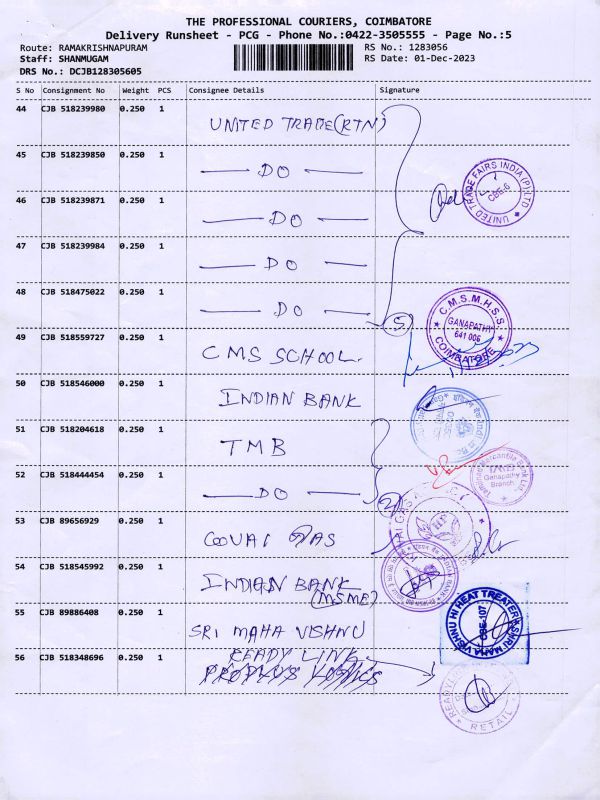 THE PROFESSIONAL COURIERS, COIMBATORE
Delivery Runsheet - PCG - Phone No.:0422-3505555 - Page No.:5
Route: RAMAKRISHNAPURAM RS No.: 1283056
Staff: SHANMUGAM RS Date: 01-Dec-2023
DRS No.: DCJB128305605
S No Consignment No Weight PCS Consignee Details Signature
44 CJB 518239980 0.250 1 UNITED TRADE(RTN)
45 CJB 518239850 0.250 1 — DO —
UNITED TRADE FAIRS INDIA (P) LTD
CBE-6
46 CJB 518239871 0.250 1 — DO —
47 CJB 518239984 0.250 1 — DO —
48 CJB 518475022 0.250 1 — DO —
5
C.M.S.M.H.S.S.
GANAPATHY
641 006
COIMBATORE
49 CJB 518559727 0.250 1 CMS SCHOOL.
50 CJB 518546000 0.250 1 INDIAN BANK
51 CJB 518204618 0.250 1 TMB
Tamilnad Mercantile Bank Ltd.
TMB
Ganapathy
Branch
52 CJB 518444454 0.250 1 — DO —
2
53 CJB 89656929 0.250 1 COVAI GAS
54 CJB 518545992 0.250 1 INDIAN BANK
(MSME)
55 CJB 89886408 0.250 1 SRI MAHA VISHNU
SHRI MAHA VISHNU HI HEAT TREATER
CBE-107
READY LINK
56 CJB 518348696 0.250 1
RETAIL